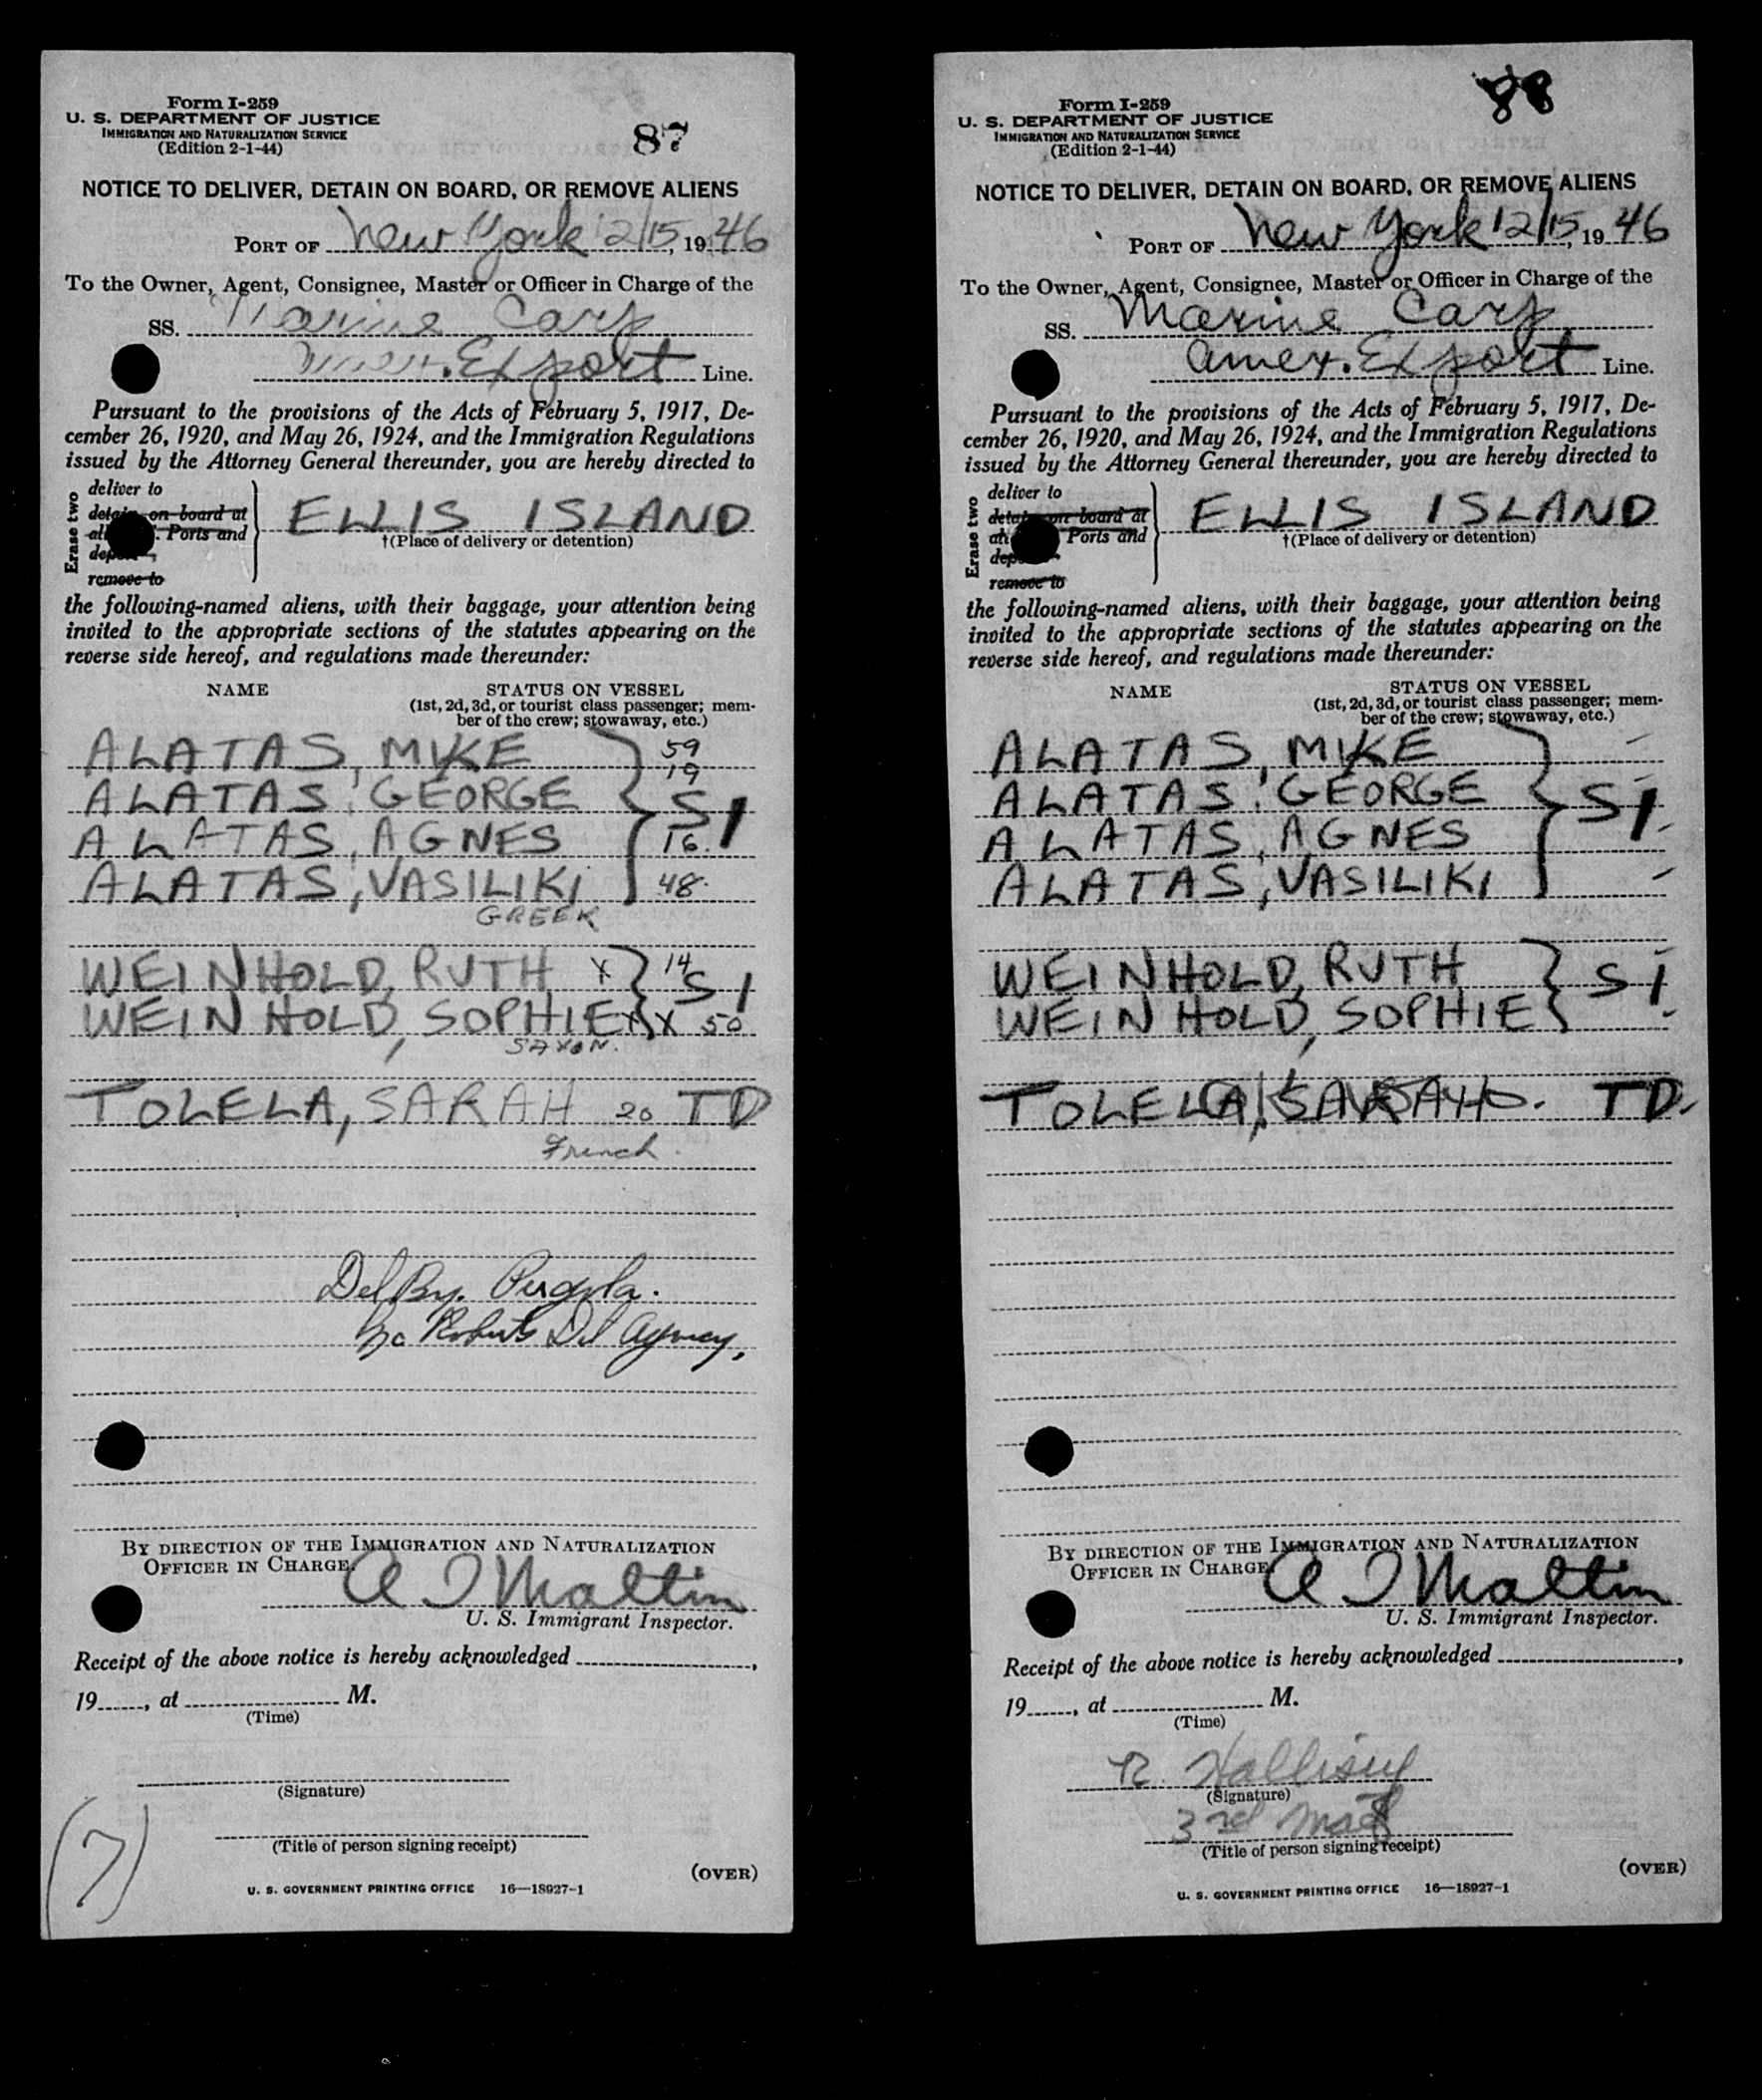 Form I-259
U. S. DEPARTMENT OF JUSTICE
IMMIGRATION AND NATURALIZATION SERVICE
(Edition 2-1-44)
87
NOTICE TO DELIVER, DETAIN ON BOARD, OR REMOVE ALIENS
PORT OF New York 12/15, 1946
To the Owner, Agent, Consignee, Master or Officer in Charge of the
SS. Marine Carp
Amer. Export Line.
Pursuant to the provisions of the Acts of February 5, 1917, De-
cember 26, 1920, and May 26, 1924, and the Immigration Regulations
issued by the Attorney General thereunder, you are hereby directed to
Erase two
deliver to
detain on board at
Ports and
remove to
ELLIS ISLAND
†(Place of delivery or detention)
the following-named aliens, with their baggage, your attention being
invited to the appropriate sections of the statutes appearing on the
reverse side hereof, and regulations made thereunder:
NAME STATUS ON VESSEL
(1st, 2d, 3d, or tourist class passenger; mem-
ber of the crew; stowaway, etc.)
ALATAS, MIKE 59
ALATAS, GEORGE 19 SI
ALATAS, AGNES 16
ALATAS, VASILIKI 48
GREEK
WEINHOLD, RUTH X 14 SI
WEINHOLD, SOPHIE X X 50
SAXON.
TOLELA, SARAH 20 TD
French
Del By. Pergola.
Roberts Del Agency,
BY DIRECTION OF THE IMMIGRATION AND NATURALIZATION
OFFICER IN CHARGE
A I Maltin
U. S. Immigrant Inspector.
Receipt of the above notice is hereby acknowledged
19, at M.
(Time)
(Signature)
(7)
(Title of person signing receipt)
(OVER)
U. S. GOVERNMENT PRINTING OFFICE 16—18927-1
Form I-259
U. S. DEPARTMENT OF JUSTICE
IMMIGRATION AND NATURALIZATION SERVICE
(Edition 2-1-44)
88
NOTICE TO DELIVER, DETAIN ON BOARD, OR REMOVE ALIENS
PORT OF New York 12/15, 1946
To the Owner, Agent, Consignee, Master or Officer in Charge of the
SS. Marine Carp
Amer. Export Line.
Pursuant to the provisions of the Acts of February 5, 1917, De-
cember 26, 1920, and May 26, 1924, and the Immigration Regulations
issued by the Attorney General thereunder, you are hereby directed to
Erase two
deliver to
detain on board at
Ports and
remove to
ELLIS ISLAND
†(Place of delivery or detention)
the following-named aliens, with their baggage, your attention being
invited to the appropriate sections of the statutes appearing on the
reverse side hereof, and regulations made thereunder:
NAME STATUS ON VESSEL
(1st, 2d, 3d, or tourist class passenger; mem-
ber of the crew; stowaway, etc.)
ALATAS, MIKE
ALATAS, GEORGE SI
ALATAS, AGNES
ALATAS, VASILIKI
WEINHOLD, RUTH SI
WEINHOLD, SOPHIE
TOLELA, SARAH TD.
BY DIRECTION OF THE IMMIGRATION AND NATURALIZATION
OFFICER IN CHARGE
A I Maltin
U. S. Immigrant Inspector.
Receipt of the above notice is hereby acknowledged
19, at M.
(Time)
R. Hallisey
(Signature)
3rd Mate
(Title of person signing receipt)
(OVER)
U. S. GOVERNMENT PRINTING OFFICE 16—18927-1